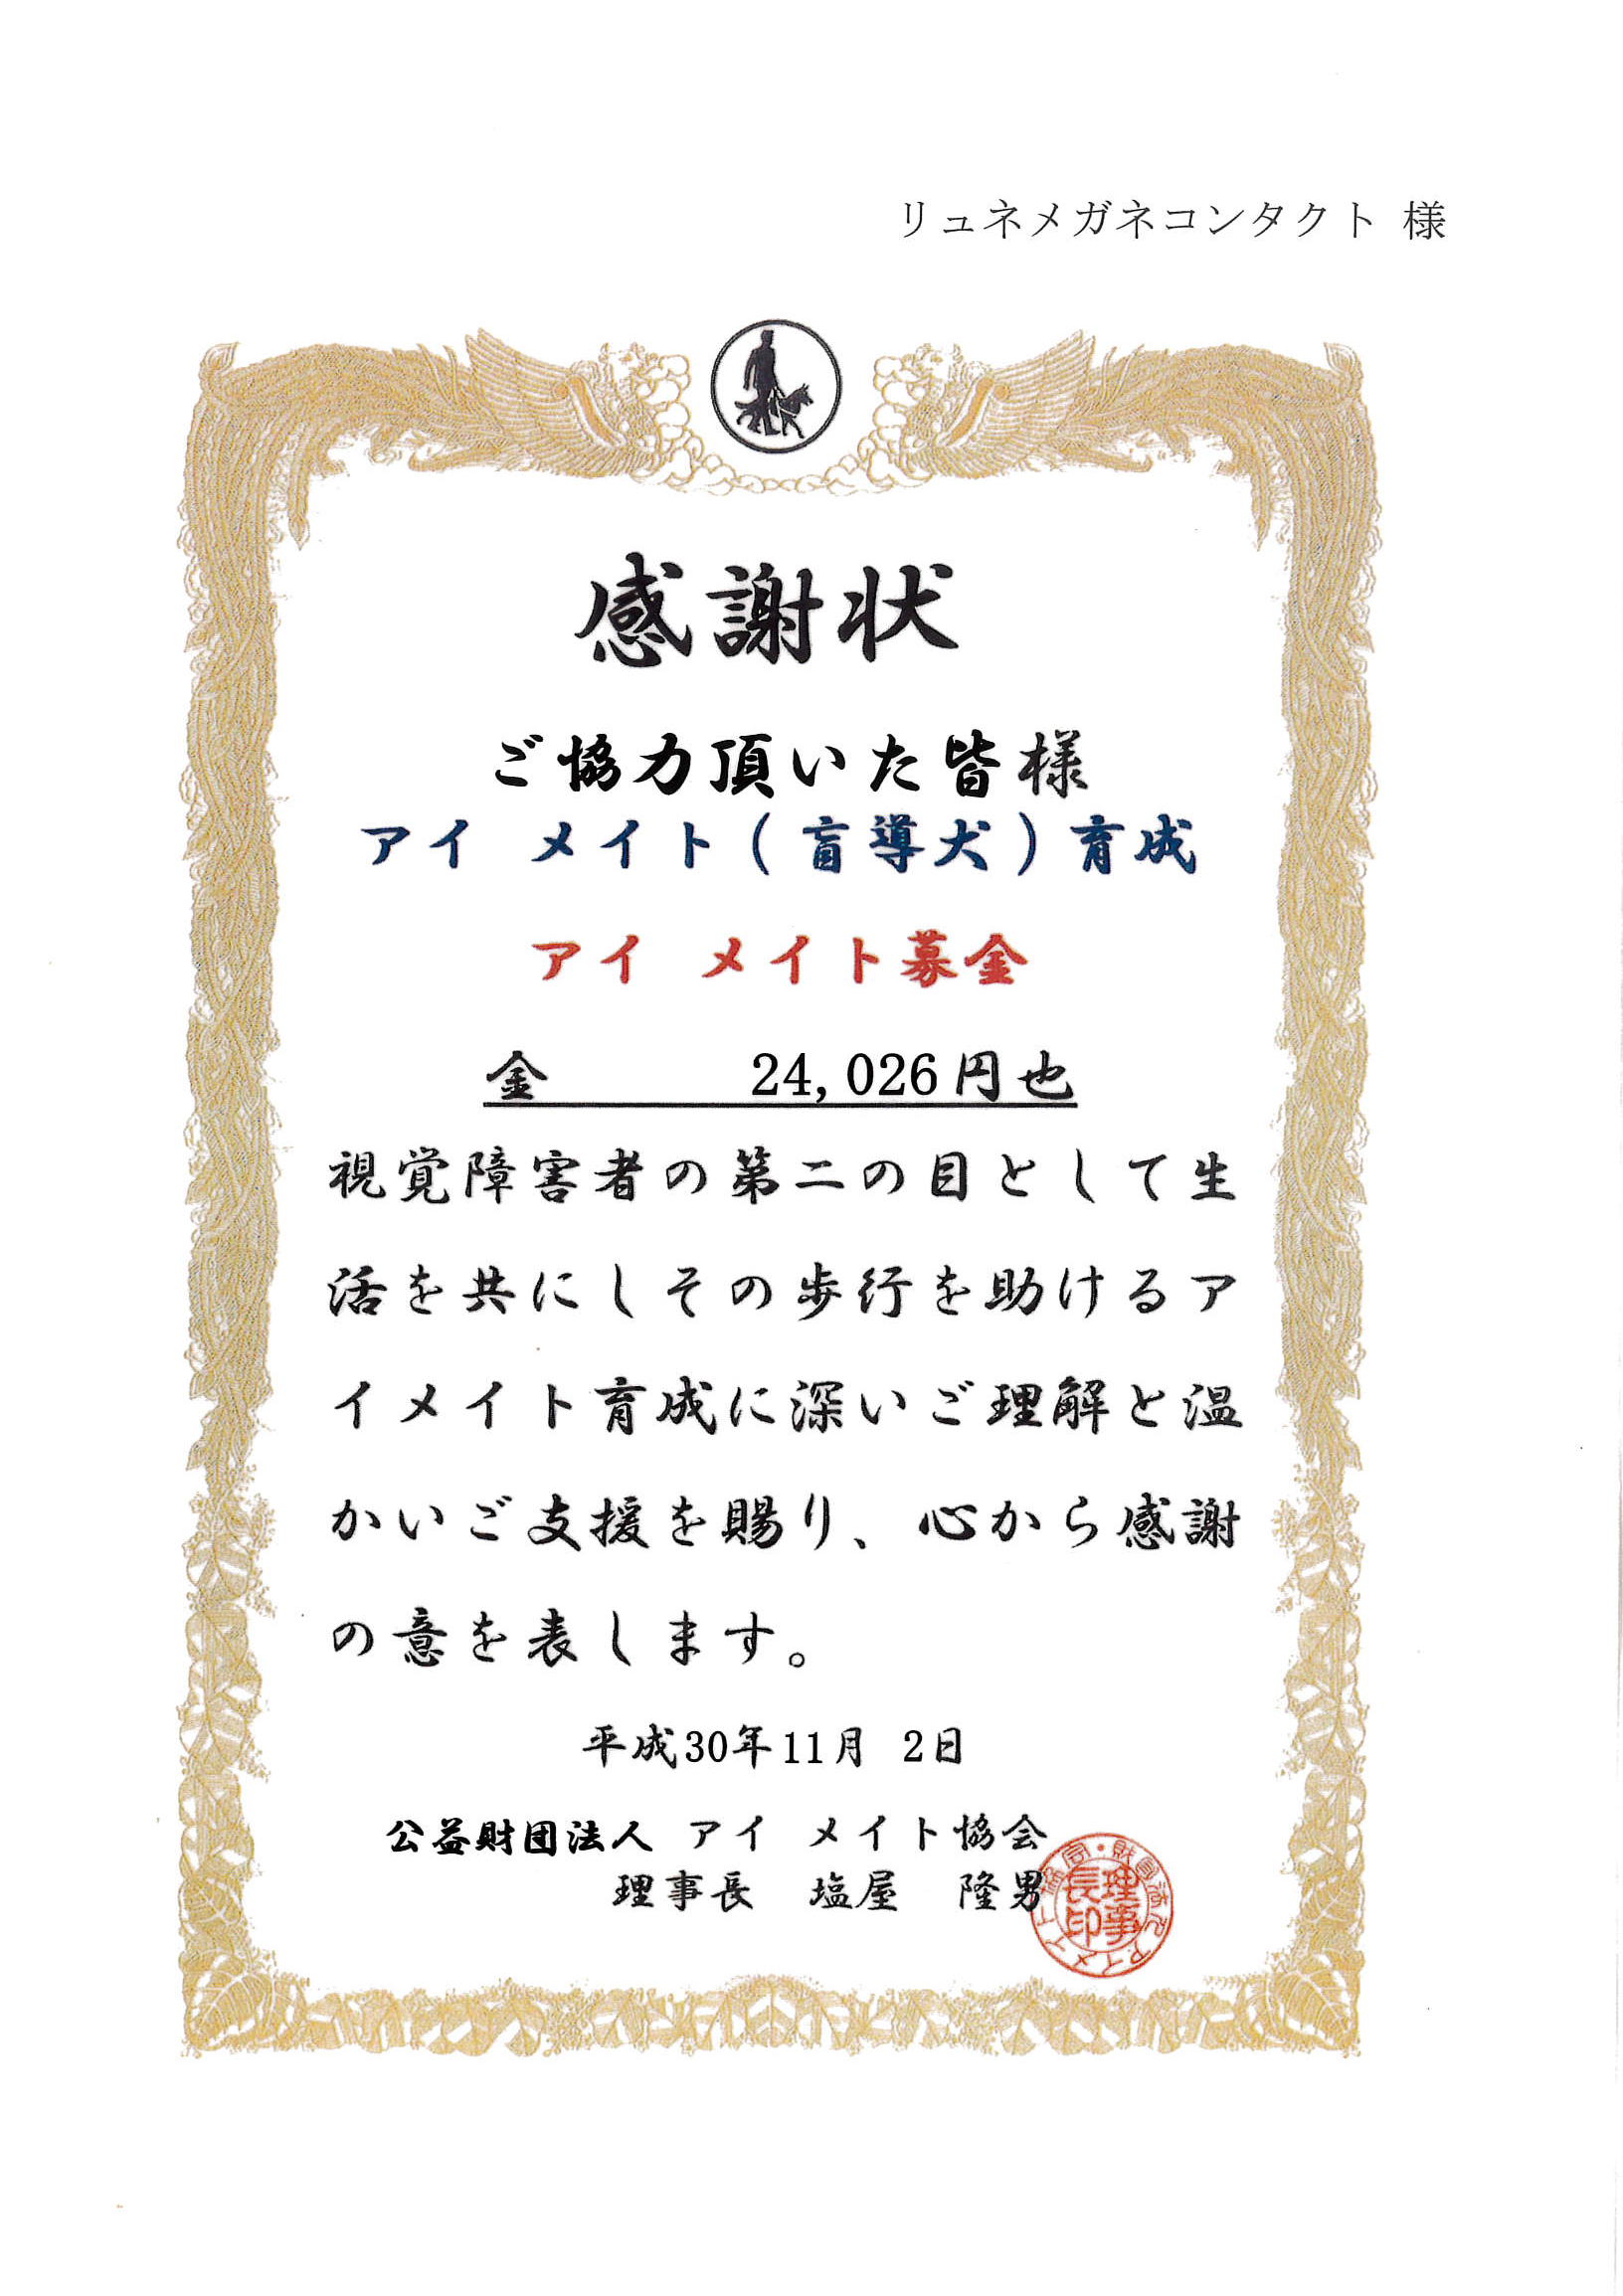 リュネメガネコンタクト 様
感謝状
ご協力頂いた皆様
アイ メイト(盲導犬)育成
アイ メイト募金
金 24,026円也
視覚障害者の第二の目として生
活を共にしその歩行を助けるア
イメイト育成に深いご理解と温
かいご支援を賜り、心から感謝
の意を表します。
平成30年11月 2日
公益財団法人 アイ メイト協会
理事長 塩屋 隆男
理事長印